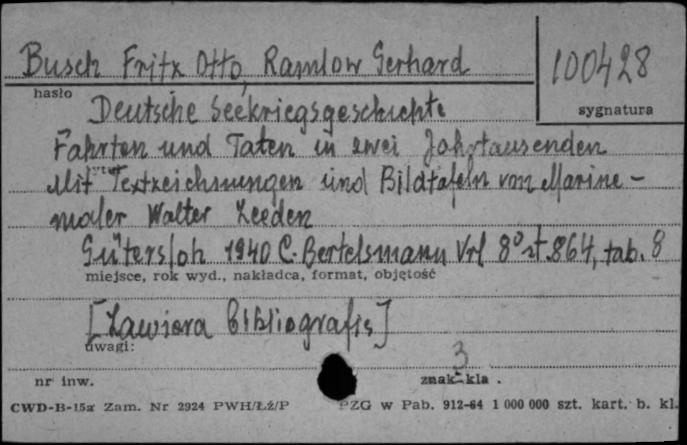 Busch Fritz Otto, Ramlow Gerhard
100428
hasło
sygnatura
Deutsche Seekriegsgeschichte
Fahrten und Taten in zwei Jahrtausenden
Mit Textzeichnungen und Bildtafeln von Marine-
maler Walter Zeeden
Gütersloh 1940 C. Bertelsmann Vrl 8° st. 864, tab. 8
miejsce, rok wyd., nakładca, format, objętość
[Zawiera bibliografię]
uwagi:
3
nr inw.
znak kla .
CWD-B-15a Zam. Nr 2924 PWH/Łź/P
PZG w Pab. 912-64 1 000 000 szt. kart. b. kl.